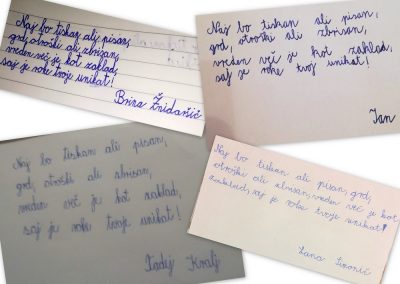 Naj bo tiskan ali pisan,
grd, otroški ali zbrisan,
vreden več je kot zaklad,
saj je roke tvoje unikat!
Brina Žnidaršič
Naj bo tiskan ali pisan,
grd, otroški ali zbrisan,
vreden več je kot zaklad,
saj je roke tvoj unikat!
Jan
Naj bo tiskan ali pisan,
grd, otroški ali zbrisan,
vreden več je kot zaklad,
saj je roke tvoje unikat!
Tadej Kralj
Naj bo tiskan ali pisan, grd,
otroški ali zbrisan, vreden več je kot
zaklad, saj je roke tvoje unikat!
Lana